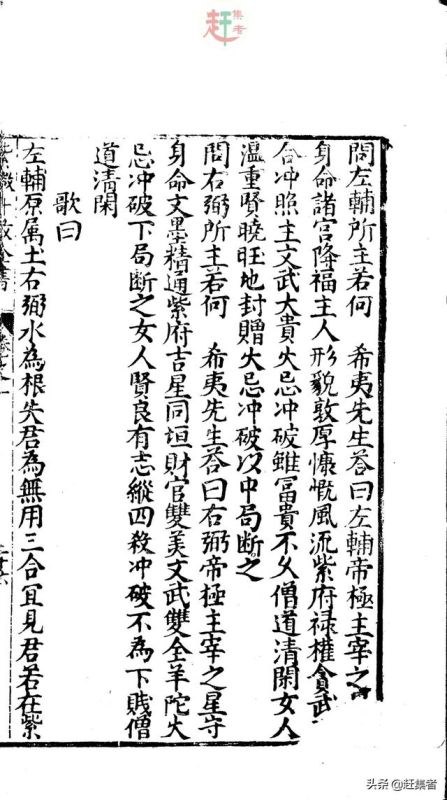 赶集者
問左輔所主若何　希夷先生荅曰左輔帝極主宰之
身命諸宮降福主人形貌敦厚慷慨風流紫府禄權貪武
合冲照主文武大貴火忌冲破雖冨貴不久僧道清閑女人
温重賢曉旺地封贈火忌冲破以中局断之
問右弼所主若何　希夷先生荅曰右弼帝極主宰之星守
身命文墨精通紫府吉星同垣財官雙美文武雙全羊陀火
忌冲破下局断之女人賢良有志縱四殺冲破不為下賤僧
道清閑
歌曰
左輔原属土右弼水為根失君為無用三合冝見君若在紫
头条 @赶集者